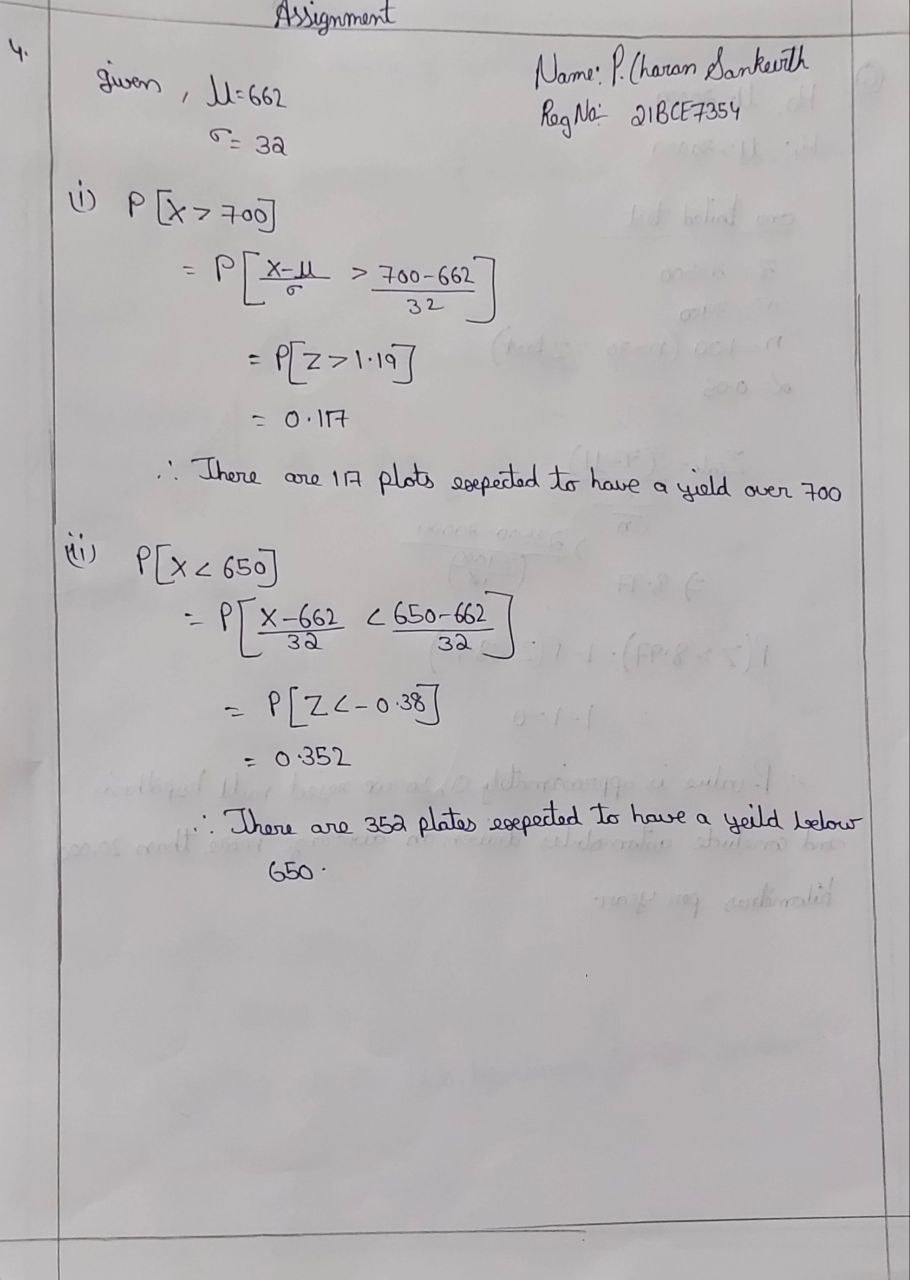 Assignment
4.
given, μ=662
Name: P. Charan Sankeerth
Reg No:- 21BCE7354
σ= 32
(i) P[X > 700]
= P[X-μ/σ > 700-662/32]
= P[Z > 1.19]
= 0.117
∴ There are 117 plots expected to have a yield over 700
(ii) P[X < 650]
= P[X-662/32 < 650-662/32]
= P[Z < -0.38]
= 0.352
∴ There are 352 plates expected to have a yeild below
650.